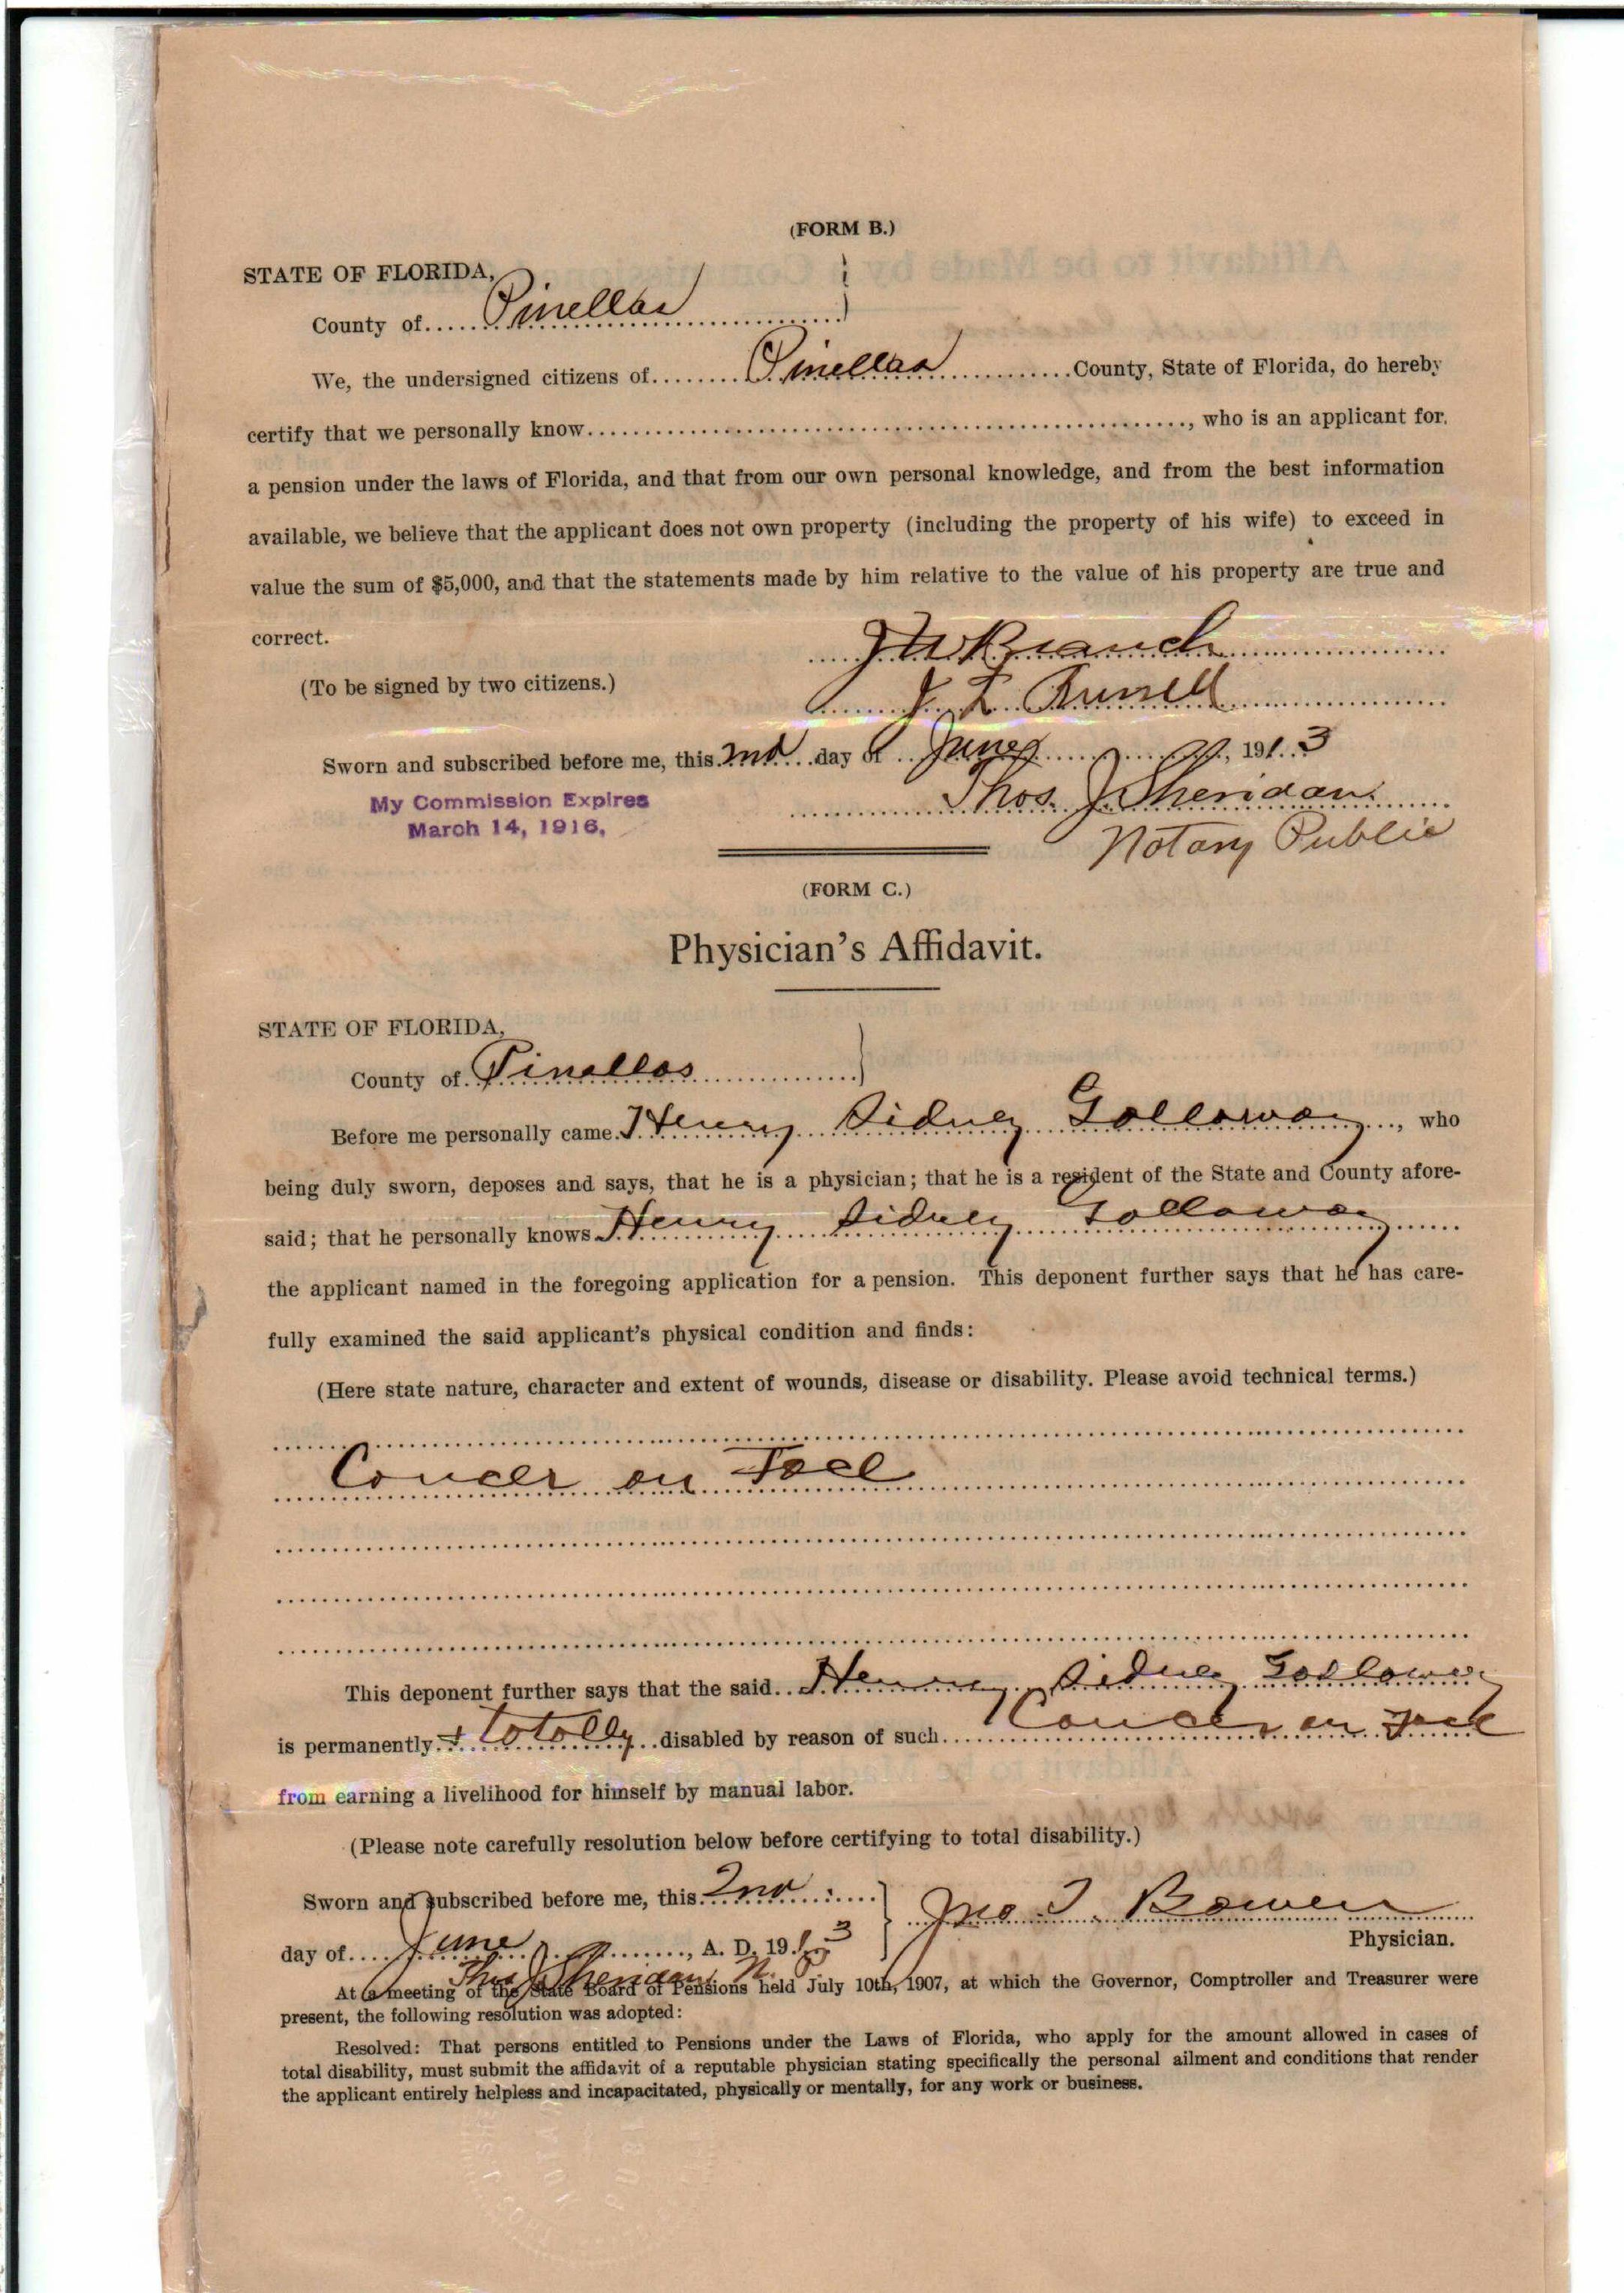 (FORM B.)
STATE OF FLORIDA,
County of Pinellas
We, the undersigned citizens of Pinellas County, State of Florida, do hereby
certify that we personally know, who is an applicant for
a pension under the laws of Florida, and that from our own personal knowledge, and from the best information
available, we believe that the applicant does not own property (including the property of his wife) to exceed in
value the sum of $5,000, and that the statements made by him relative to the value of his property are true and
correct.
J W Branch
(To be signed by two citizens.)
J. L.
Sworn and subscribed before me, this 2nd day of June, 1913
My Commission Expires
March 14, 1916.
Thos. J Sheridan
Notary Public
(FORM C.)
Physician's Affidavit.
STATE OF FLORIDA,
County of Pinellas
Before me personally came Henry Sidney Galloway, who
being duly sworn, deposes and says, that he is a physician; that he is a resident of the State and County afore-
said; that he personally knows Henry Sidney Galloway
the applicant named in the foregoing application for a pension. This deponent further says that he has care-
fully examined the said applicant's physical condition and finds:
(Here state nature, character and extent of wounds, disease or disability. Please avoid technical terms.)
Cancer on Face
This deponent further says that the said Henry Sidney Galloway
is permanently + totally disabled by reason of such Cancer on face
from earning a livelihood for himself by manual labor.
(Please note carefully resolution below before certifying to total disability.)
Sworn and subscribed before me, this 2nd
Jno T. Bowen
day of June, A. D. 1913
Physician.
Thos J Sheridan N. P.
At a meeting of the State Board of Pensions held July 10th, 1907, at which the Governor, Comptroller and Treasurer were
present, the following resolution was adopted:
Resolved: That persons entitled to Pensions under the Laws of Florida, who apply for the amount allowed in cases of
total disability, must submit the affidavit of a reputable physician stating specifically the personal ailment and conditions that render
the applicant entirely helpless and incapacitated, physically or mentally, for any work or business.